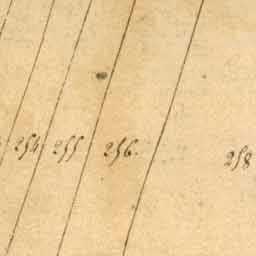 254 255 256. 258